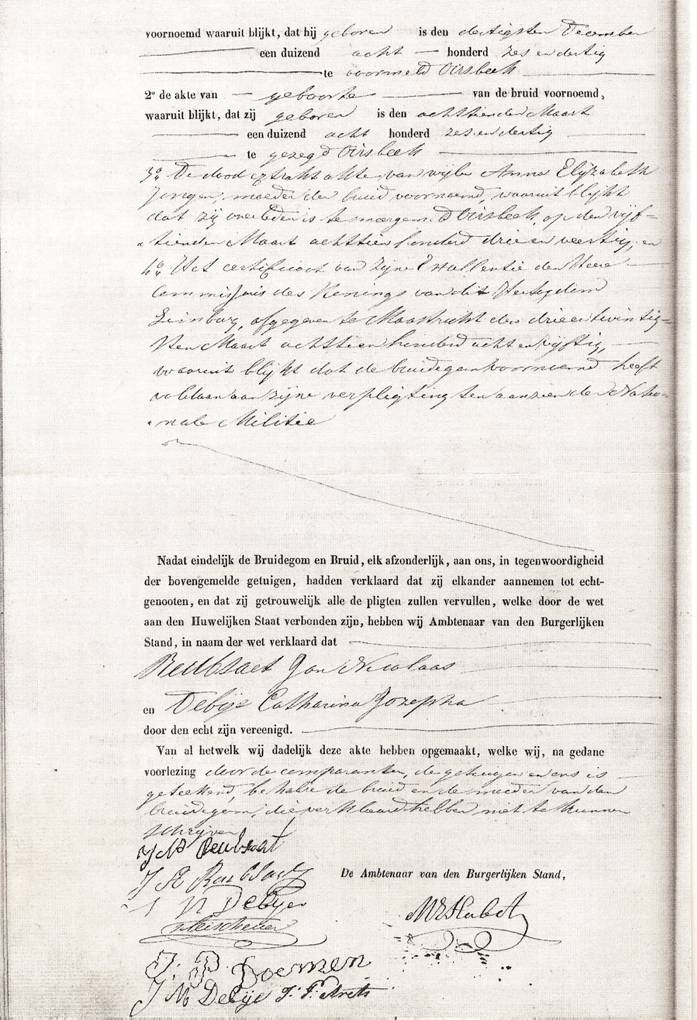 voornoemd waaruit blijkt, dat hij geboren is den dertigsten December
een duizend acht honderd zes en dertig
te voormeld Oirsbeek
2° de akte van geboorte van de bruid voornoemd,
waaruit blijkt, dat zij geboren is den achttienden Maart
een duizend acht honderd zes en dertig
te gezegd Oirsbeek
3° De dood extrakt akte van wijlen Anna Elizabeth
Jongen, moeder der bruid voornoemd, waaruit blijkt
dat zij overleden is te Oirsbeek, op den vijf-
tienden Maart achttien honderd drie en veertig, en
4° Het certificaat van Zijne Excellentie den Heer
Commissaris des Konings van dit Hertogdom
Limburg, afgegeven te Maastricht den drie en twintig-
sten Maart achttien honderd acht en vijftig,
waaruit blijkt dat de bruidegom voornoemd heeft
voldaan aan zijne verpligting ten aanzien der Natio-
nale Militie
Nadat eindelijk de Bruidegom en Bruid, elk afzonderlijk, aan ons, in tegenwoordigheid
der bovengemelde getuigen, hadden verklaard dat zij elkander aannemen tot echt-
genooten, en dat zij getrouwelijk alle de pligten zullen vervullen, welke door de wet
aan den Huwelijken Staat verbonden zijn, hebben wij Ambtenaar van den Burgerlijken
Stand, in naam der wet verklaard dat
Reubsaet Jan Nicolaas
en Debije Catharina Jozepha
door den echt zijn vereenigd.
Van al hetwelk wij dadelijk deze akte hebben opgemaakt, welke wij, na gedane
voorlezing door de comparanten, de getuigen en ons is
geteekend, behalve de bruid en de moeder van den
bruidegom, die verklaard hebben niet te kunnen
schrijven
J N Reubsaet
De Ambtenaar van den Burgerlijken Stand,
J N Debije
J. P. Doemen
J N Debije J. F. Arets